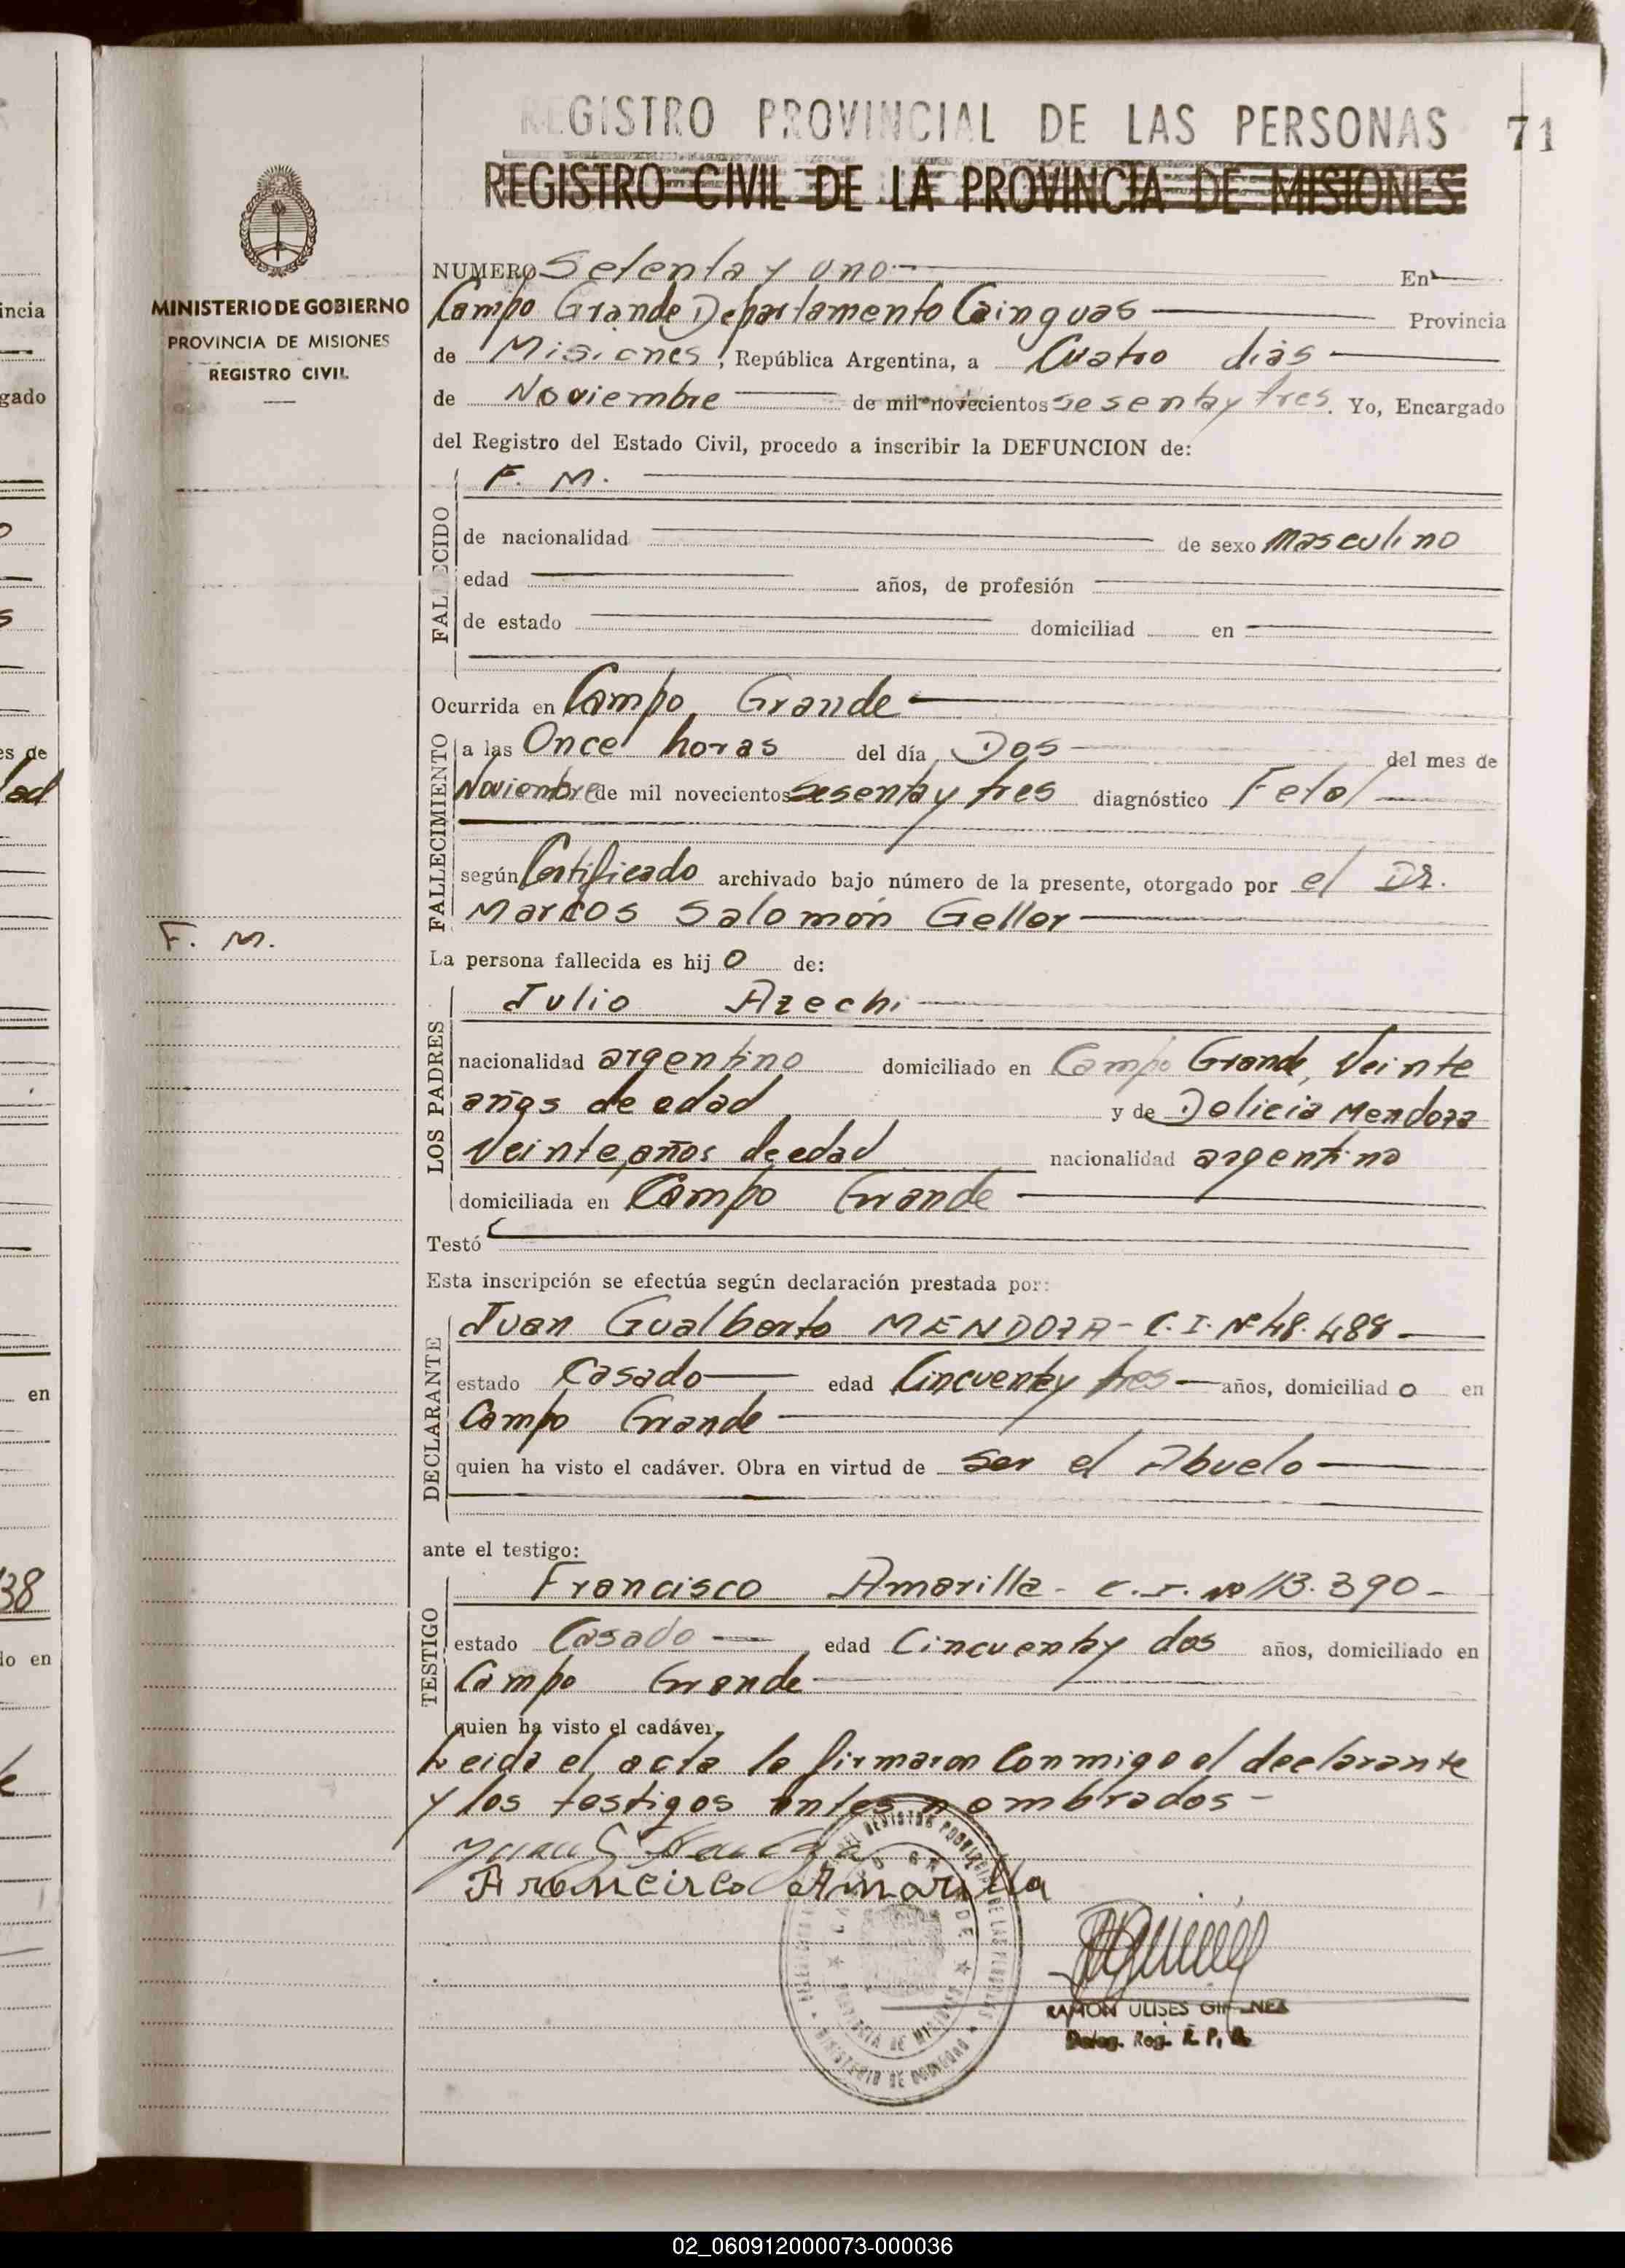 REGISTRO PROVINCIAL DE LAS PERSONAS 71
REGISTRO CIVIL DE LA PROVINCIA DE MISIONES
MINISTERIO DE GOBIERNO
PROVINCIA DE MISIONES
REGISTRO CIVIL
NUMERO Setenta y uno En
Campo Grande Departamento Cainguas Provincia
de Misiones, República Argentina, a Cuatro dias
de Noviembre de mil novecientos sesenta y tres. Yo, Encargado
del Registro del Estado Civil, procedo a inscribir la DEFUNCION de:
F. M.
FALLECIDO
de nacionalidad de sexo Masculino
edad años, de profesión
de estado domiciliad en
Ocurrida en Campo Grande
FALLECIMIENTO
a las Once horas del día Dos del mes de
Noviembre de mil novecientos sesenta y tres diagnóstico Fetal
según Certificado archivado bajo número de la presente, otorgado por el Dr.
Marcos Salomón Geller
F. M.
La persona fallecida es hij o de:
LOS PADRES
Julio Arechi
nacionalidad argentino domiciliado en Campo Grande, Veinte
años de edad y de Delicia Mendoza
Veinte años de edad nacionalidad argentino
domiciliada en Campo Grande
Testó
Esta inscripción se efectúa según declaración prestada por:
DECLARANTE
Juan Gualberto MENDOZA - C.I. Nº 48.488
estado Casado edad Cincuenta y tres años, domiciliad o en
Campo Grande
quien ha visto el cadáver. Obra en virtud de ser el Abuelo
ante el testigo:
TESTIGO
Francisco Amarilla - C.I. Nº 113.390 -
estado Casado edad Cincuenta y dos años, domiciliado en
Campo Grande
quien ha visto el cadáver.
Leida el acta la firmaron conmigo el declarante
y los testigos antes nombrados -
Francisco Amarilla
RAMON ULISES GIMENEZ
02_060912000073-000036